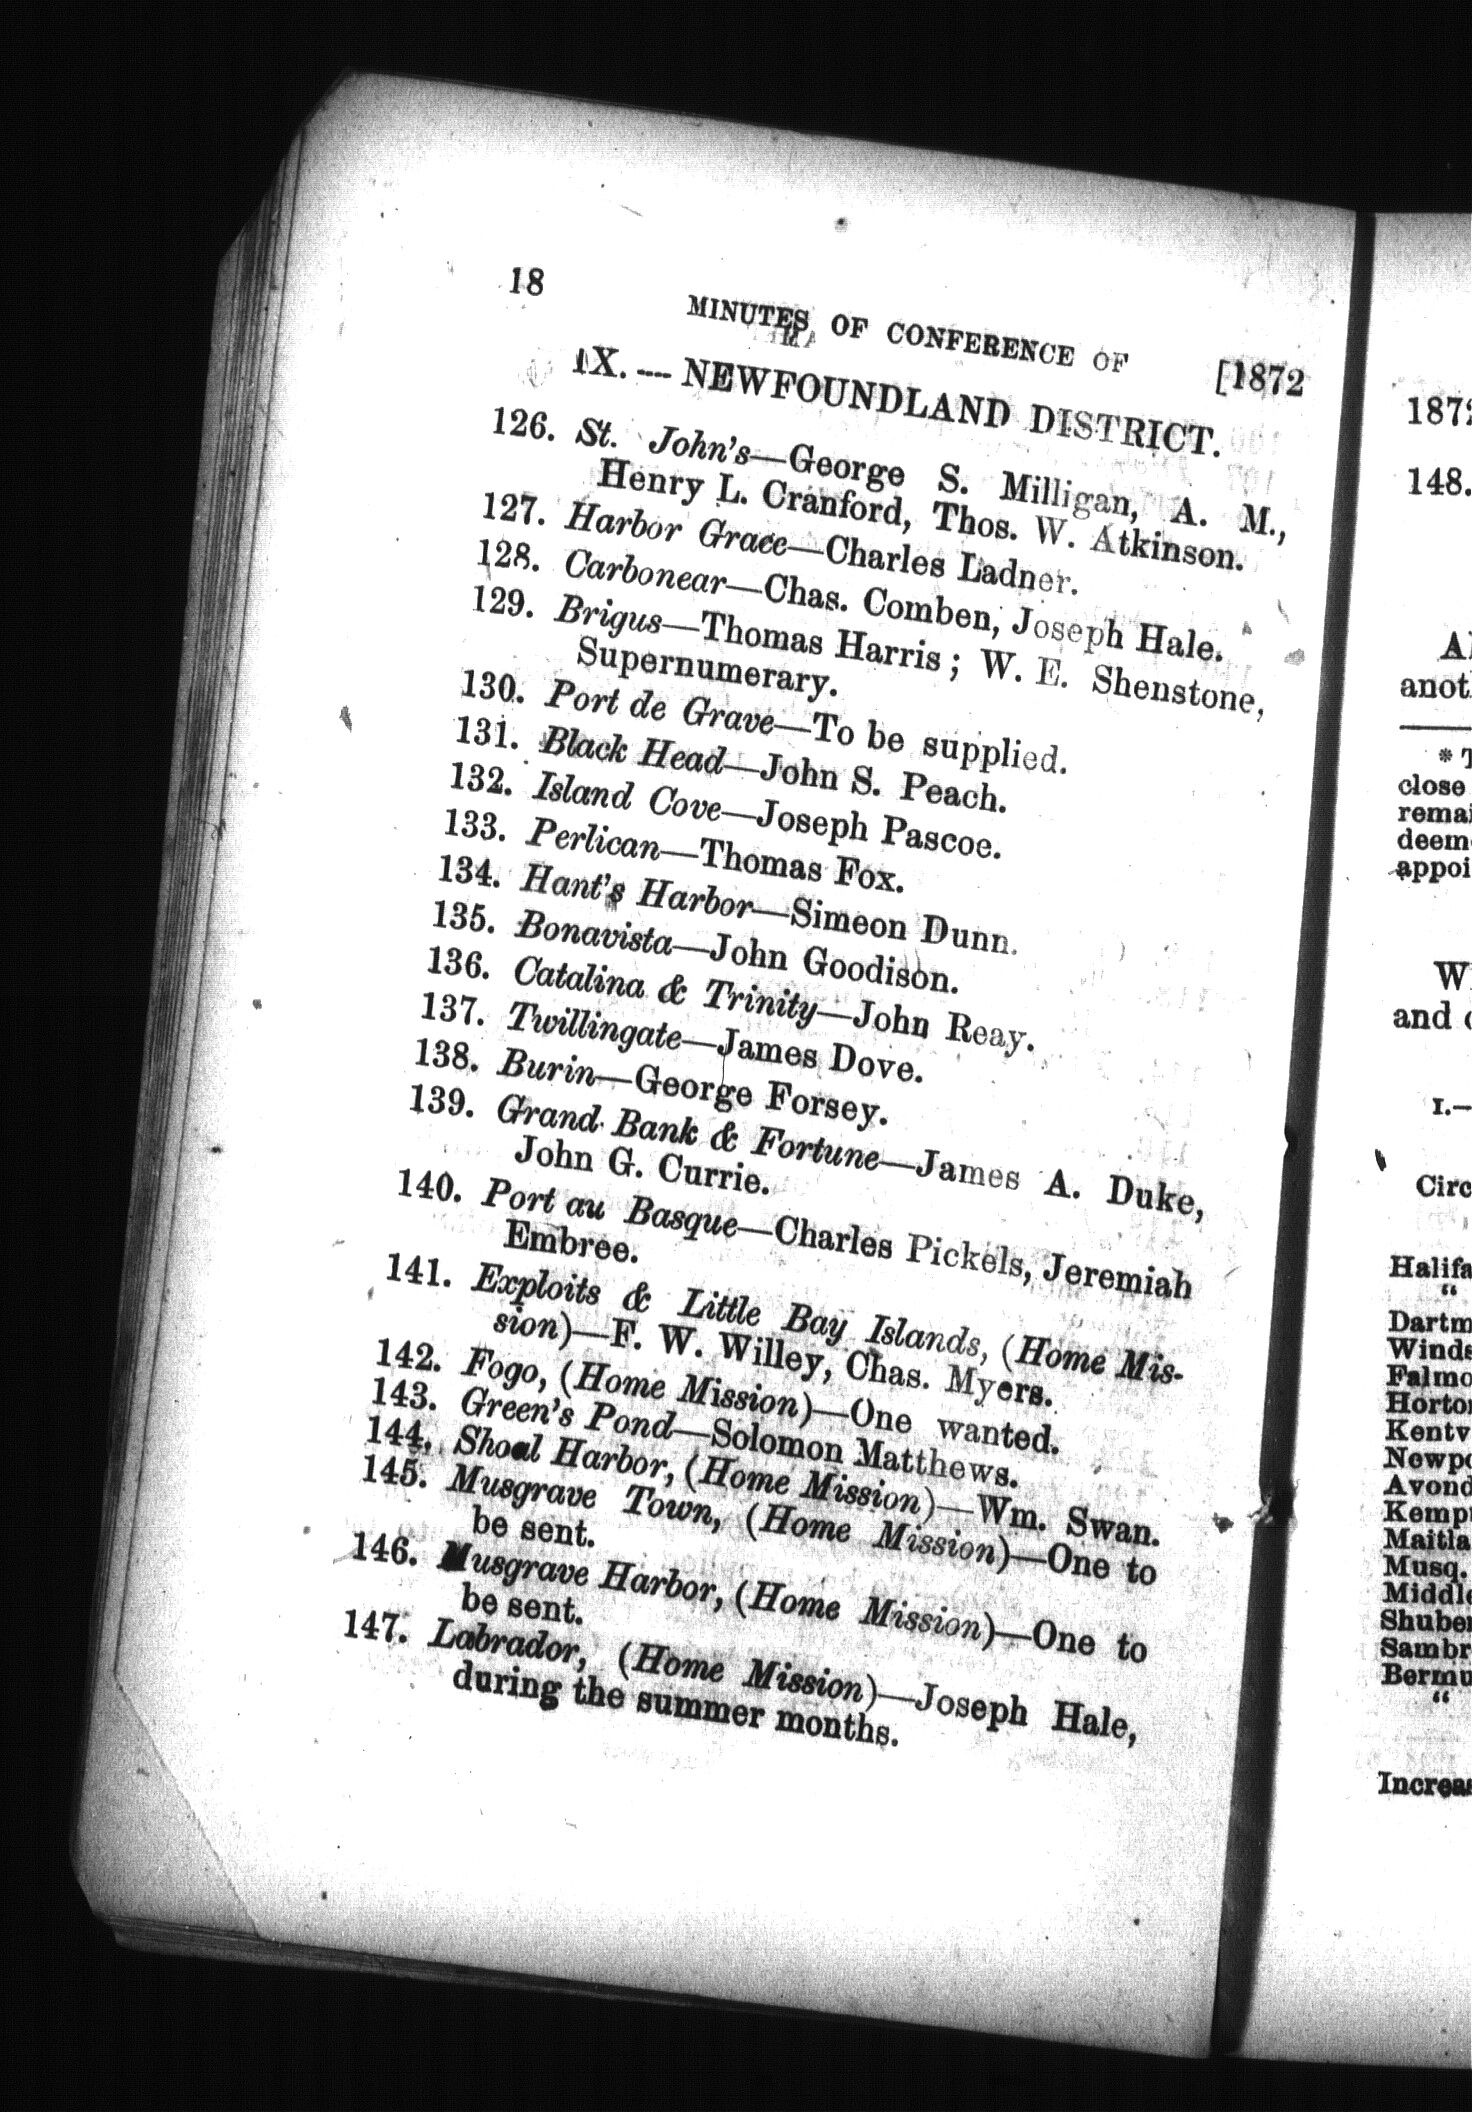 18 MINUTES OF CONFERENCE OF [1872
IX.—NEWFOUNDLAND DISTRICT.
126. St. John's—George S. Milligan, A. M.,
Henry L. Cranford, Thos. W. Atkinson.
127. Harbor Grace—Charles Ladner.
128. Carbonear—Chas. Comben, Joseph Hale.
129. Brigus—Thomas Harris; W. E. Shenstone,
Supernumerary.
130. Port de Grave—To be supplied.
131. Black Head—John S. Peach.
132. Island Cove—Joseph Pascoe.
133. Perlican—Thomas Fox.
134. Hant's Harbor—Simeon Dunn.
135. Bonavista—John Goodison.
136. Catalina & Trinity—John Reay.
137. Twillingate—James Dove.
138. Burin—George Forsey.
139. Grand Bank & Fortune—James A. Duke,
John G. Currie.
140. Port au Basque—Charles Pickels, Jeremiah
Embree.
141. Exploits & Little Bay Islands, (Home Mis-
sion)—F. W. Willey, Chas. Myers.
142. Fogo, (Home Mission)—One wanted.
143. Green's Pond—Solomon Matthews.
144. Shoal Harbor, (Home Mission)—Wm. Swan.
145. Musgrave Town, (Home Mission)—One to
be sent.
146. Musgrave Harbor, (Home Mission)—One to
be sent.
147. Labrador, (Home Mission)—Joseph Hale,
during the summer months.
148.
* T
close
deem
and
I.—
Circ
Halifa
"
Dartm
Winds
Falmo
Horto
Kentv
Newpo
Avond
Kemp
Maitla
Musq.
Middle
Shube
Sambr
Bermu
"
Increas